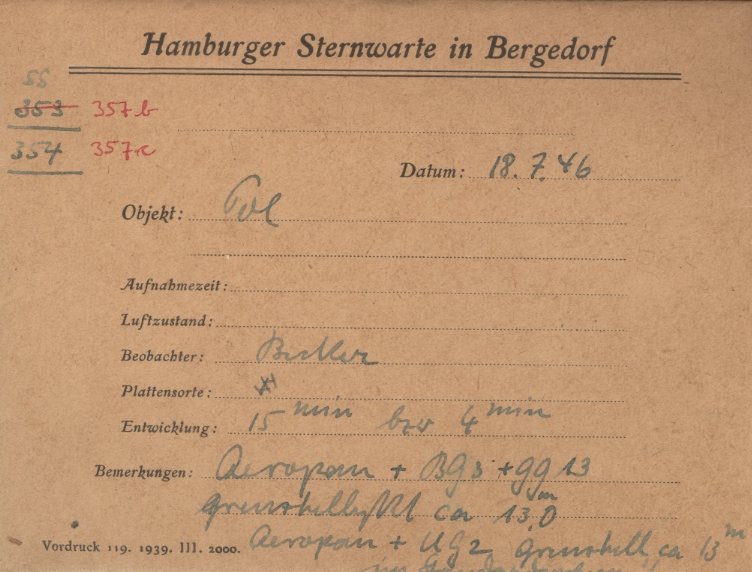 Hamburger Sternwarte in Bergedorf
55
353 357b
354 357c
Datum: 18.7.46
Objekt: Pol
Aufnahmezeit:
Luftzustand:
Beobachter:
Plattensorte:
Entwicklung: 15 min bzw 4 min
Bemerkungen: Aeropan + BG3 + gg 13
ca 13,0 m
Vordruck 119. 1939. III. 2000. Aeropan + UG2 ca 13 m